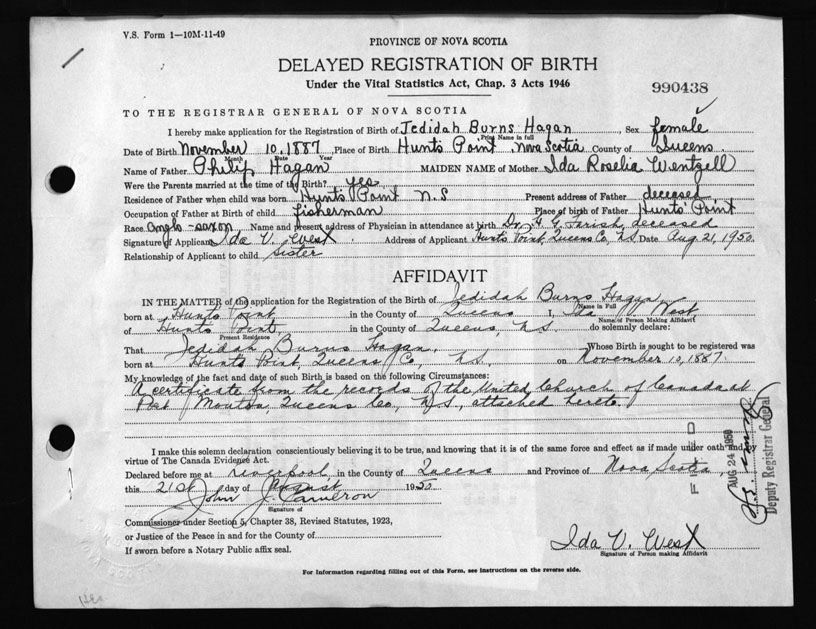 V.S. Form 1—10M-11-49
PROVINCE OF NOVA SCOTIA
DELAYED REGISTRATION OF BIRTH
Under the Vital Statistics Act, Chap. 3 Acts 1946
990438
TO THE REGISTRAR GENERAL OF NOVA SCOTIA
I hereby make application for the Registration of Birth of Jedidah Burns Hagan, Sex female
Print Name in full
Date of Birth November 10, 1887, Place of Birth Hunts Point Nova Scotia County of Queens
Month Date Year
Name of Father Philip Hagan MAIDEN NAME of Mother Ida Roselia Wentzell
Were the Parents married at the time of the Birth? yes
Residence of Father when child was born Hunts Point N.S Present address of Father deceased
Occupation of Father at Birth of child fisherman Place of birth of Father Hunts' Point
Race Anglo-saxon, Name and present address of Physician in attendance at birth Dr. H G Farish, deceased
Signature of Applicant Ida V. West. Address of Applicant Hunts Point, Queens Co, N.S. Date Aug 21, 1950.
Relationship of Applicant to child sister
AFFIDAVIT
IN THE MATTER of the application for the Registration of the Birth of Jedidah Burns Hagan,
Name in Full
born at Hunts Point in the County of Queens I, Ida V. West
Name of Person Making Affidavit
of Hunts Point, in the County of Queens, N.S. do solemnly declare:
Present Residence
That Jedidah Burns Hagan, Whose Birth is sought to be registered was
born at Hunts Point, Queens Co, N.S. on November 10, 1887
My knowledge of the fact and date of such Birth is based on the following Circumstances:
A certificate from the records of the United Church of Canada at
Port Mouton, Queens Co, N.S., attached hereto.
I make this solemn declaration conscientiously believing it to be true, and knowing that it is of the same force and effect as if made under oath and
virtue of The Canada Evidence Act.
Declared before me at Liverpool in the County of Queens and Province of Nova Scotia,
this 21st day of August 1950.
John J. Cameron
Signature of
Commissioner under Section 5, Chapter 38, Revised Statutes, 1923,
or Justice of the Peace in and for the County of
If sworn before a Notary Public affix seal.
Ida V. West
Signature of Person making Affidavit
For Information regarding filling out of this Form, see Instructions on the reverse side.
AUG 24 1950
Deputy Registrar General